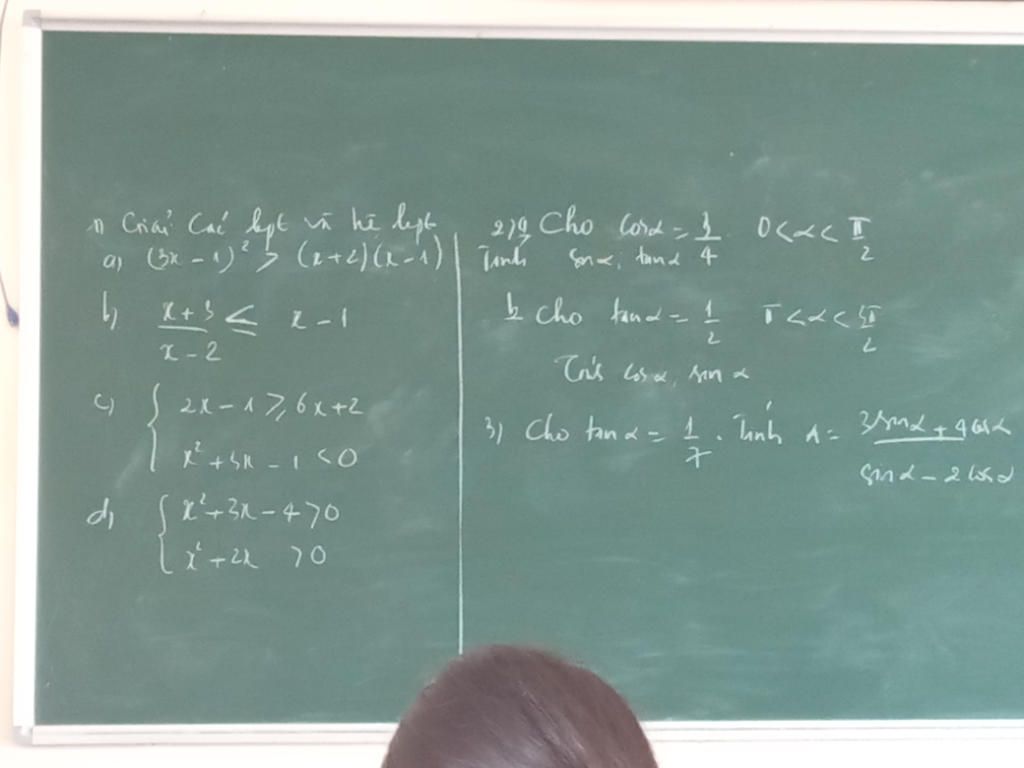 1) Giải các bpt và hệ bpt
a) (3x - 1)² > (x+2)(x-1)
b) \frac{x+3}{x-2} ≤ x - 1
c) { 2x - 1 ≥ 6x + 2
x² + 3x - 1 < 0
d) { x² + 3x - 4 > 0
x² + 2x > 0
2) a Cho cosα = \frac{3}{4} 0 < α < \frac{π}{2}
Tính sinα, tanα
b Cho tanα = \frac{1}{2} π < α < \frac{3π}{2}
cosα, sinα
3) Cho tanα = \frac{1}{7} . Tính A = \frac{3sinα + 4cosα}{sinα - 2cosα}